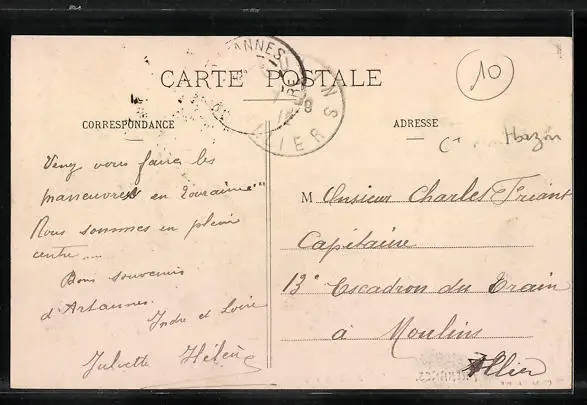 CARTE POSTALE
10
CORRESPONDANCE
ADRESSE
Venez vous faire les
manœuvres en Touraine
Nous sommes en plein
centre....
Bons souvenirs
d'Artannes.
Indre et Loire
Juliette Hélène
Monsieur Charles Friant
Capitaine
13e Escadron du Train
à Moulins
Allier